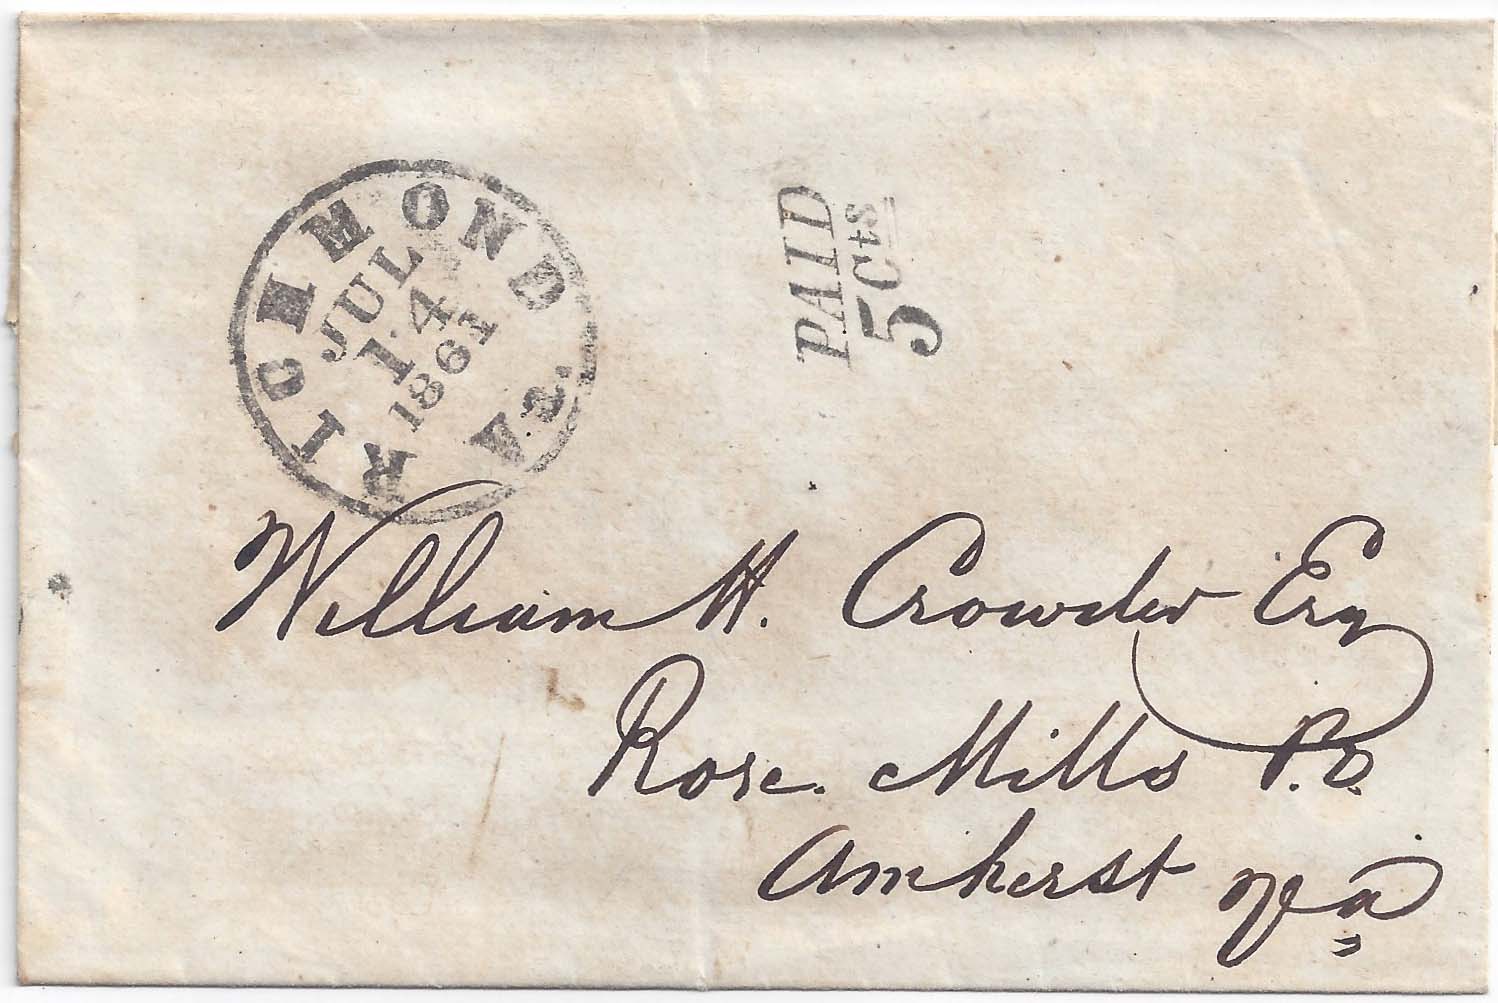 RICHMOND Va.
JUL
14
1861
PAID
5 Cts
William H. Crowder Esq
Rose Mills P.O.
Amherst Va